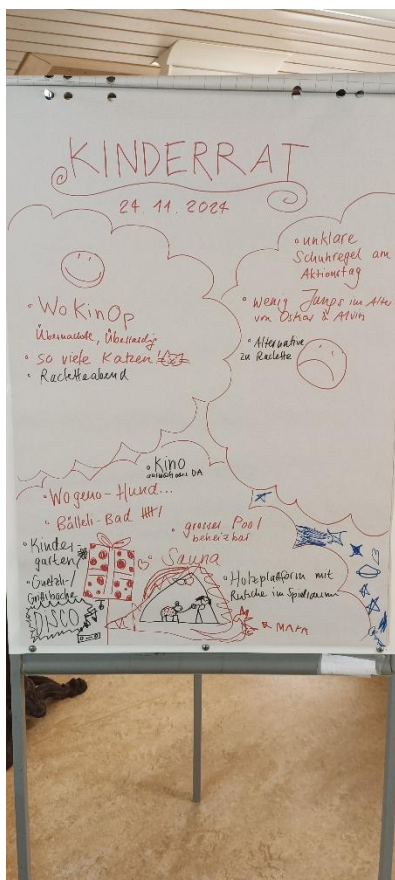 KINDERRAT
24.11.2024
• WoKinOp
• so viele Katzen!
• Racletteabend
• unklare
Schuhregel am
Aktionstag
• wenig Jungs im Alter
von Oskar & Alvin
• Alternative
zu Raclette
• Kino
DA
• Wogeno-Hund...
• Bälleli-Bad
• grosser Pool
beheizbar
• Kinder-
garten
• Guetzli-/
DISCO
Sauna
• Holzplatform mit
Rutsche im Spielraum